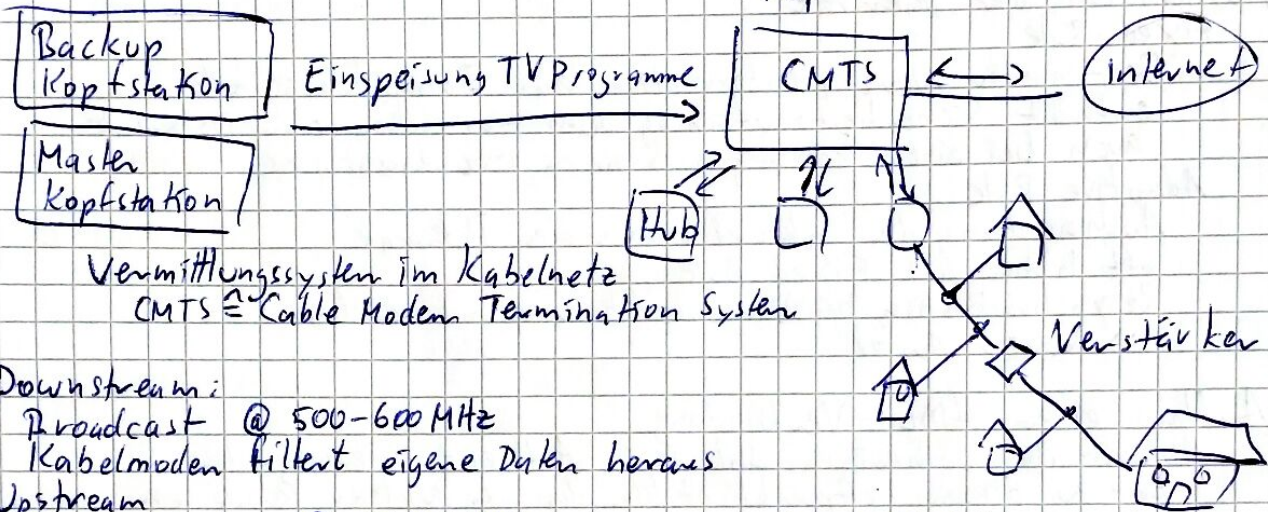 Backup
Kopfstation
Einspeisung TV Programme
CMTS
Internet
Master
Kopfstation
Hub
Vermittlungssystem im Kabelnetz
CMTS ≙ Cable Modem Termination System
Verstärker
Downstream:
Broadcast @ 500-600 MHz
Kabelmodem filtert eigene Daten heraus
Upstream